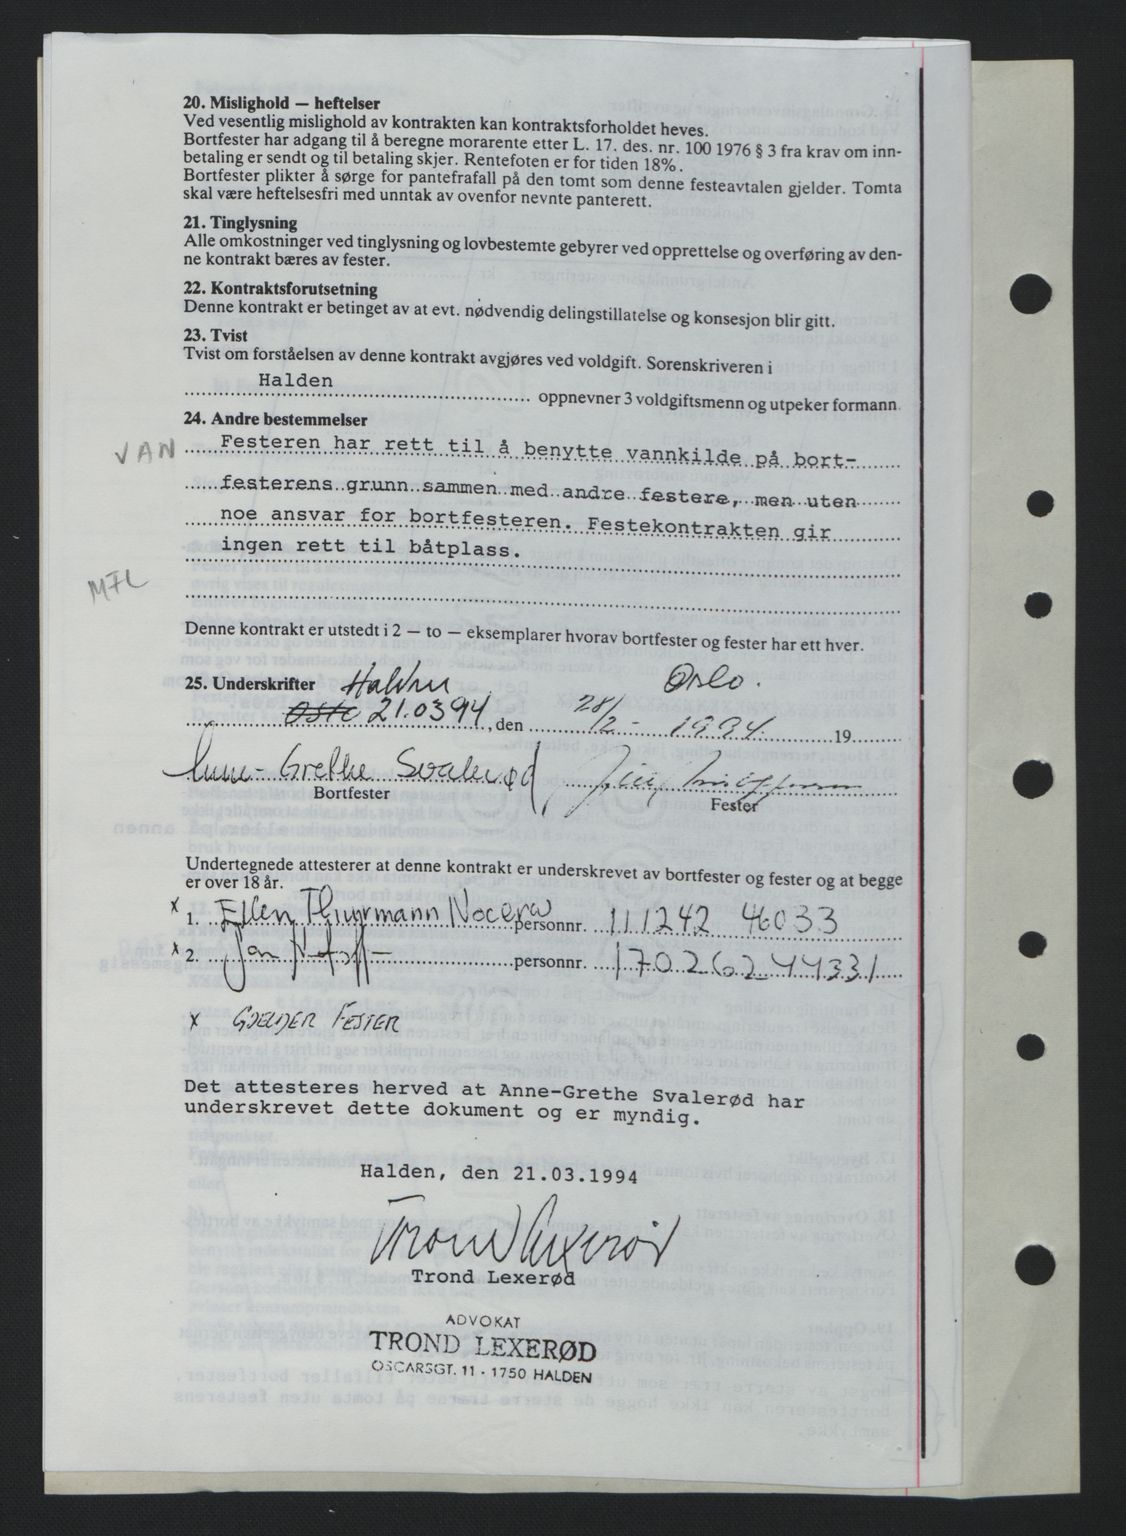 20. Mislighold — heftelser
Ved vesentlig mislighold av kontrakten kan kontraktsforholdet heves.
Bortfester har adgang til å beregne morarente etter L. 17. des. nr. 100 1976 § 3 fra krav om inn-
betaling er sendt og til betaling skjer. Rentefoten er for tiden 18%.
Bortfester plikter å sørge for pantefrafall på den tomt som denne festeavtalen gjelder. Tomta
skal være heftelsesfri med unntak av ovenfor nevnte panterett.
21. Tinglysning
Alle omkostninger ved tinglysning og lovbestemte gebyrer ved opprettelse og overføring av den-
ne kontrakt bæres av fester.
22. Kontraktsforutsetning
Denne kontrakt er betinget av at evt. nødvendig delingstillatelse og konsesjon blir gitt.
23. Tvist
Tvist om forståelsen av denne kontrakt avgjøres ved voldgift. Sorenskriveren i
Halden
oppnevner 3 voldgiftsmenn og utpeker formann.
24. Andre bestemmelser
VAN Festeren har rett til å benytte vannkilde på bort-
festerens grunn sammen med andre festere, men uten
noe ansvar for bortfesteren. Festekontrakten gir
ingen rett til båtplass.
MFL
Denne kontrakt er utstedt i 2 — to — eksemplarer hvorav bortfester og fester har ett hver.
25. Underskrifter Halden Oslo.
Oslo 21.03 94, den 28/2 - 1994 19
Anne-Grethe Svalerød
Bortfester Fester
Undertegnede attesterer at denne kontrakt er underskrevet av bortfester og fester og at begge
er over 18 år.
x 1. Ellen Thurmann Nocera personnr. 111242 46033
x 2. Jan personnr. 170262 44331
x GJELDER FESTER
Det attesteres herved at Anne-Grethe Svalerød har
underskrevet dette dokument og er myndig.
Halden, den 21.03.1994
Trond Lexerød
Trond Lexerød
ADVOKAT
TROND LEXERØD
OSCARSGT. 11 - 1750 HALDEN